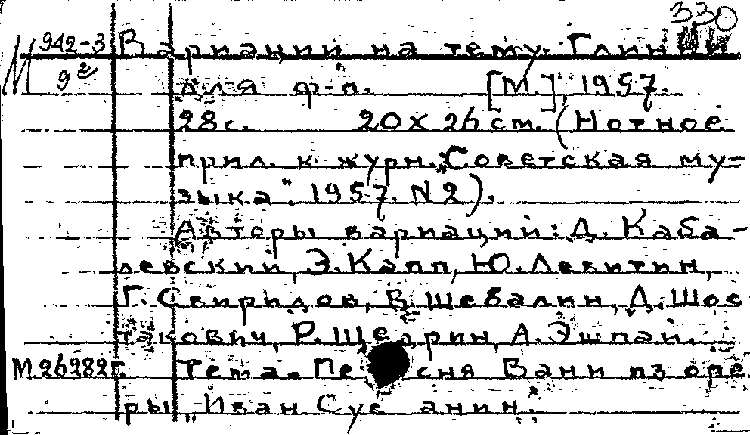 330
М 942-3 Вариации на тему Глинки
9²
для ф-п. [М.], 1957.
28 с. 20 х 26 см. (Нотное
прил. к журн. „Советская му-
зыка". 1957. N 2).
Авторы вариаций: Д. Каба-
левский, Э. Капп, Ю. Левитин,
Г. Свиридов, В. Шебалин, Д. Шос
такович, Р. Щедрин, А. Эшпай.
М.26282г. Тема - Песня Вани из опе
ры „Иван Сусанин".